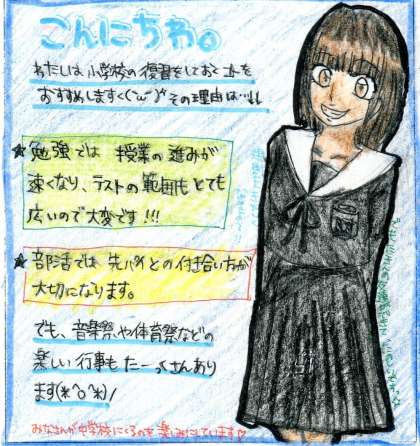 こんにちわ。
わたしは小学校の復習をしておくコトを
おすすめします
その理由は…!!
★勉強では 授業の進みが
速くなり、テストの範囲もとても
広いので大変です!!!
★部活では、先パイとの付き合い方が
大切になります。
でも、音楽祭や体育祭などの
楽しい行事もたーっくさんあり
ます(*^o^*)/
みなさんが中学校にくるのを楽しみにしています☆